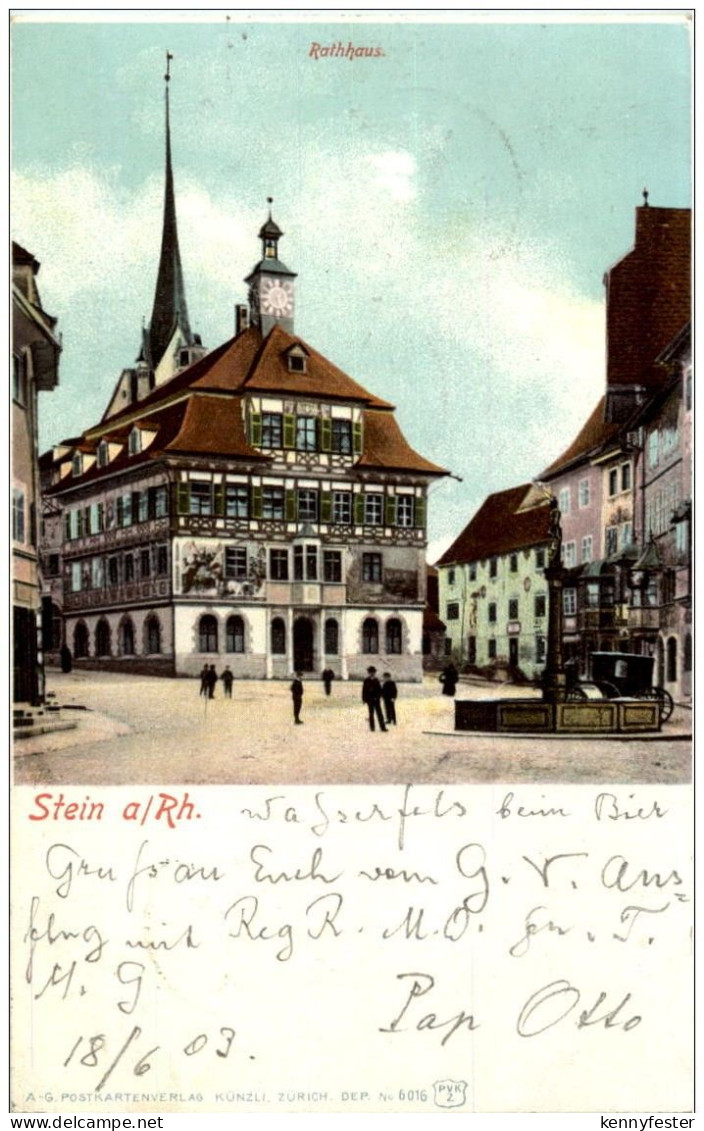 Rathhaus.
Stein a/Rh. Wasserfels beim Bier
Gruss an Euch vom G. V. Aus=
flug mit Reg R. M. O. Gen. T.
M. G
Pap Otto
18/6 03.
A-G. POSTKARTENVERLAG KÜNZLI, ZÜRICH. DEP. No 6016 PVK Z.
kennyfester